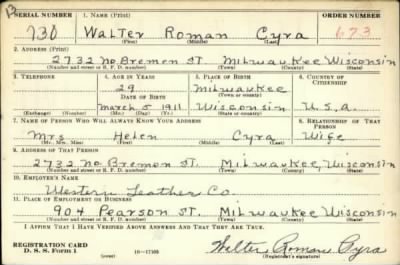 B
SERIAL NUMBER 1. NAME (Print) ORDER NUMBER
730 Walter Roman Cyra 673
(First) (Middle) (Last)
2. ADDRESS (Print)
2732 No. Bremen ST. Milwaukee Wisconsin
(Number and street or R. F. D. number) (Town) (County) (State)
3. TELEPHONE 4. AGE IN YEARS 5. PLACE OF BIRTH 6. COUNTRY OF CITIZENSHIP
29 Milwaukee
DATE OF BIRTH (Town or county)
March 5 1911 Wisconsin U.S.A.
(Exchange) (Number) (Mo.) (Day) (Yr.) (State or country)
7. NAME OF PERSON WHO WILL ALWAYS KNOW YOUR ADDRESS 8. RELATIONSHIP OF THAT PERSON
Mrs Helen Cyra Wife
(Mr., Mrs., Miss) (First) (Middle) (Last)
9. ADDRESS OF THAT PERSON
2732 No. Bremen ST. Milwaukee, Wisconsin
(Number and street or R. F. D. number) (Town) (County) (State)
10. EMPLOYER'S NAME
Western Leather Co.
11. PLACE OF EMPLOYMENT OR BUSINESS
904 Pearson ST. Milwaukee Wisconsin
(Number and street or R. F. D. number) (Town) (County) (State)
I AFFIRM THAT I HAVE VERIFIED ABOVE ANSWERS AND THAT THEY ARE TRUE.
REGISTRATION CARD
D. S. S. Form 1 (over) 16—17105 Walter Roman Cyra
(Registrant's signature)